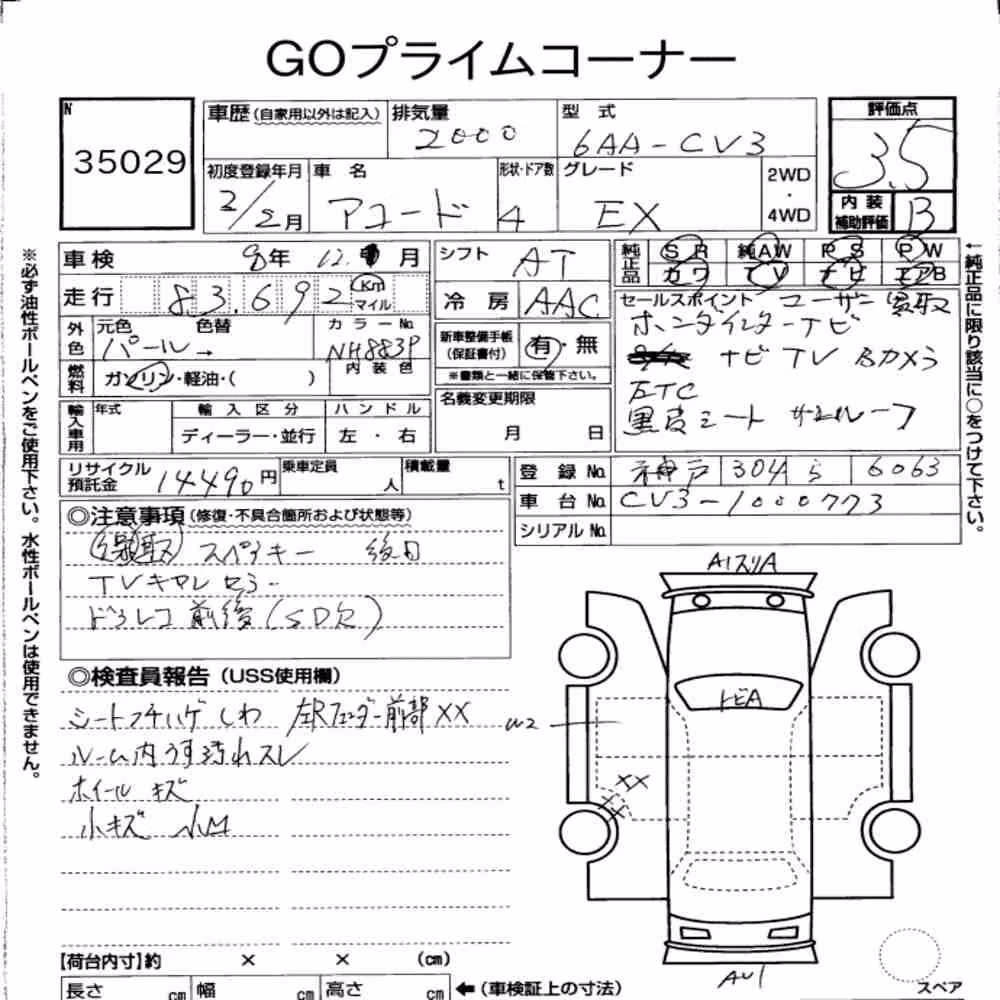 GOプライムコーナー
N
35029
車歴(自家用以外は記入)
排気量
2000
型 式
6AA-CV3
評価点
3.5
初度登録年月
2/2月
車 名
アコード
形状・ドア数
4
グレード
EX
2WD
・
4WD
内 装
補助評価
B
車検
8年 12. 月
シフト
AT
純正品
SR 純AW PS PW
カワ TV ナビ エアB
走行
83.692
Km
マイル
冷 房
AAC
セールスポイント ユーザー買取
ホンダインターナビ
ナビ TV Bカメラ
ETC
黒皮シート サンルーフ
外色
元色 色替
パール→
カラーNo.
NH883P
内装色
新車整備手帳
(保証書付)
有・無
※書類と一緒に保管下さい。
燃料
ガソリン・軽油・( )
名義変更期限
月 日
輸入車用
年式
輸入区分
ディーラー・並行
ハンドル
左・右
リサイクル
預託金
14490円
乗車定員
人
積載量
t
登録No.
神戸 304 ら 6063
車台No.
CV3-1000773
シリアルNo.
◎注意事項(修復・不具合箇所および状態等)
スペアキー 後日
TVキャンセラー
ドラレコ前後(SD欠)
◎検査員報告(USS使用欄)
シートフチハゲ しわ 左Rフェンダー前部XX
ルーム内うす汚れスレ
ホイールキズ
小キズ
AlスリA
トビA
W2
XX
XX
AU1
スペア
【荷台内寸】約 × × (cm)
長さ cm 幅 cm 高さ cm
←(車検証上の寸法)
※必ず油性ボールペンをご使用下さい。水性ボールペンは使用できません。
←純正品に限り該当に○をつけて下さい。